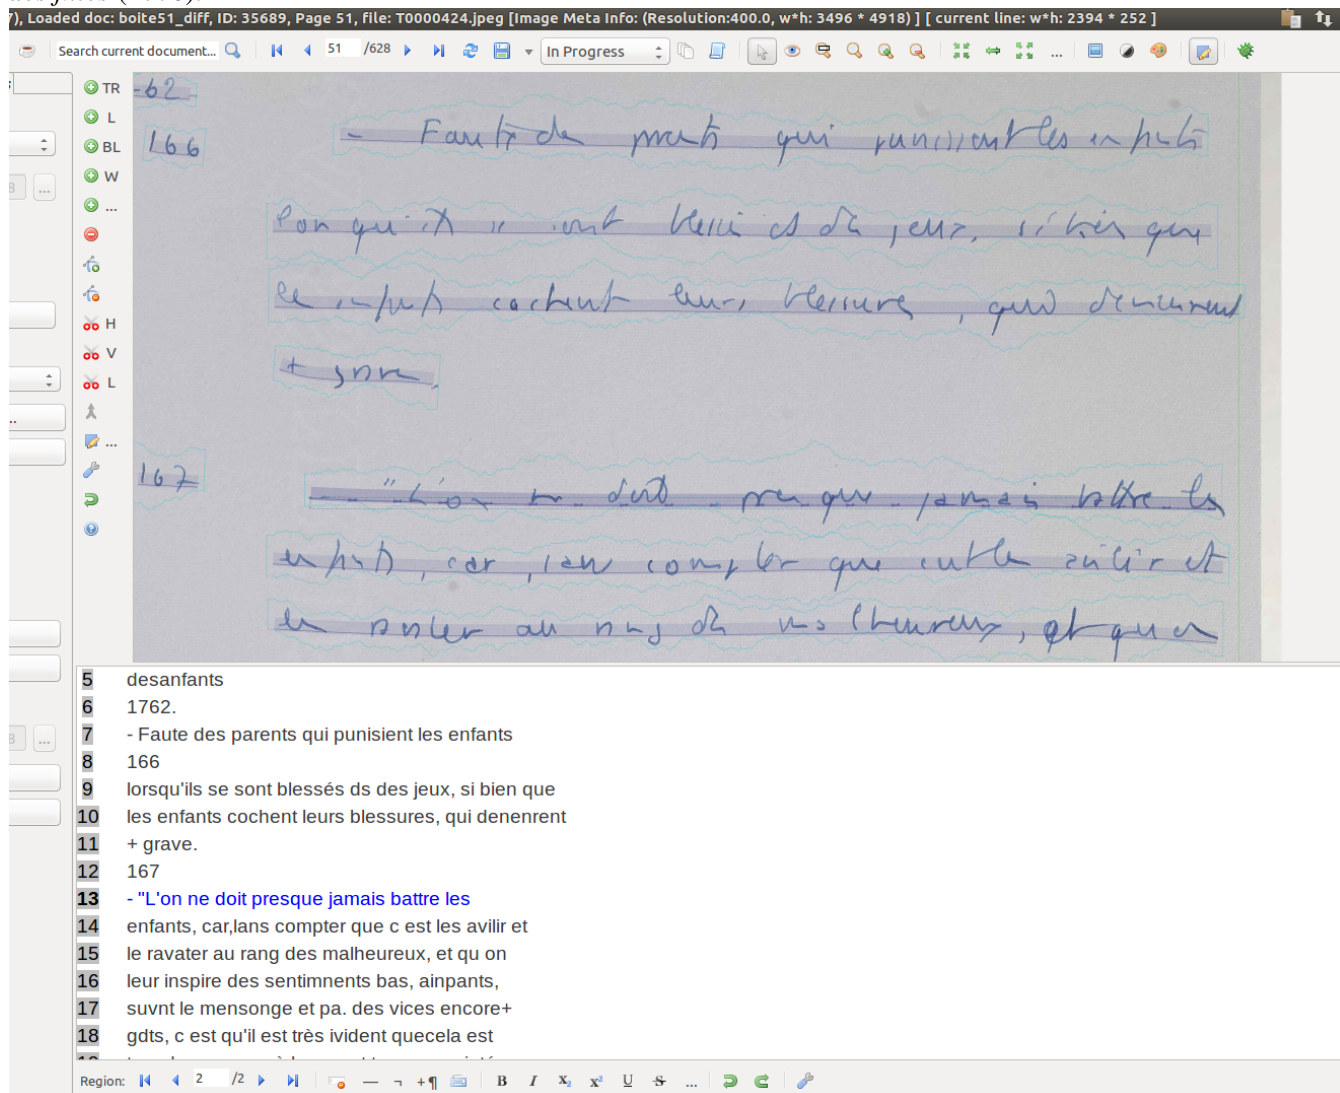 7), Loaded doc: boite51_diff, ID: 35689, Page 51, file: T0000424.jpeg [Image Meta Info: (Resolution:400.0, w*h: 3496 * 4918) ] [ current line: w*h: 2394 * 252 ]
Search current document... 51 /628 In Progress ...
TR
L
BL
W
...
H
V
L
...
-62
166 - Faute de parents qui punissent les enfants
lorsqu'ils se sont blessés ds des jeux, si bien que
les enfants cachent leurs blessures, qui deviennent
+ grave.
167 - "L'on ne doit presque jamais battre les
enfants, car, sans compter que c'est les avilir et
les ravaler au rang des malheureux, et qu'on
5 desanfants
6 1762.
7 - Faute des parents qui punisient les enfants
8 166
9 lorsqu'ils se sont blessés ds des jeux, si bien que
10 les enfants cochent leurs blessures, qui denenrent
11 + grave.
12 167
13 - "L'on ne doit presque jamais battre les
14 enfants, car,lans compter que c est les avilir et
15 le ravater au rang des malheureux, et qu on
16 leur inspire des sentimnents bas, ainpants,
17 suvnt le mensonge et pa. des vices encore+
18 gdts, c est qu'il est très ivident quecela est
Region: 2 /2 B I X₂ X² U S ...